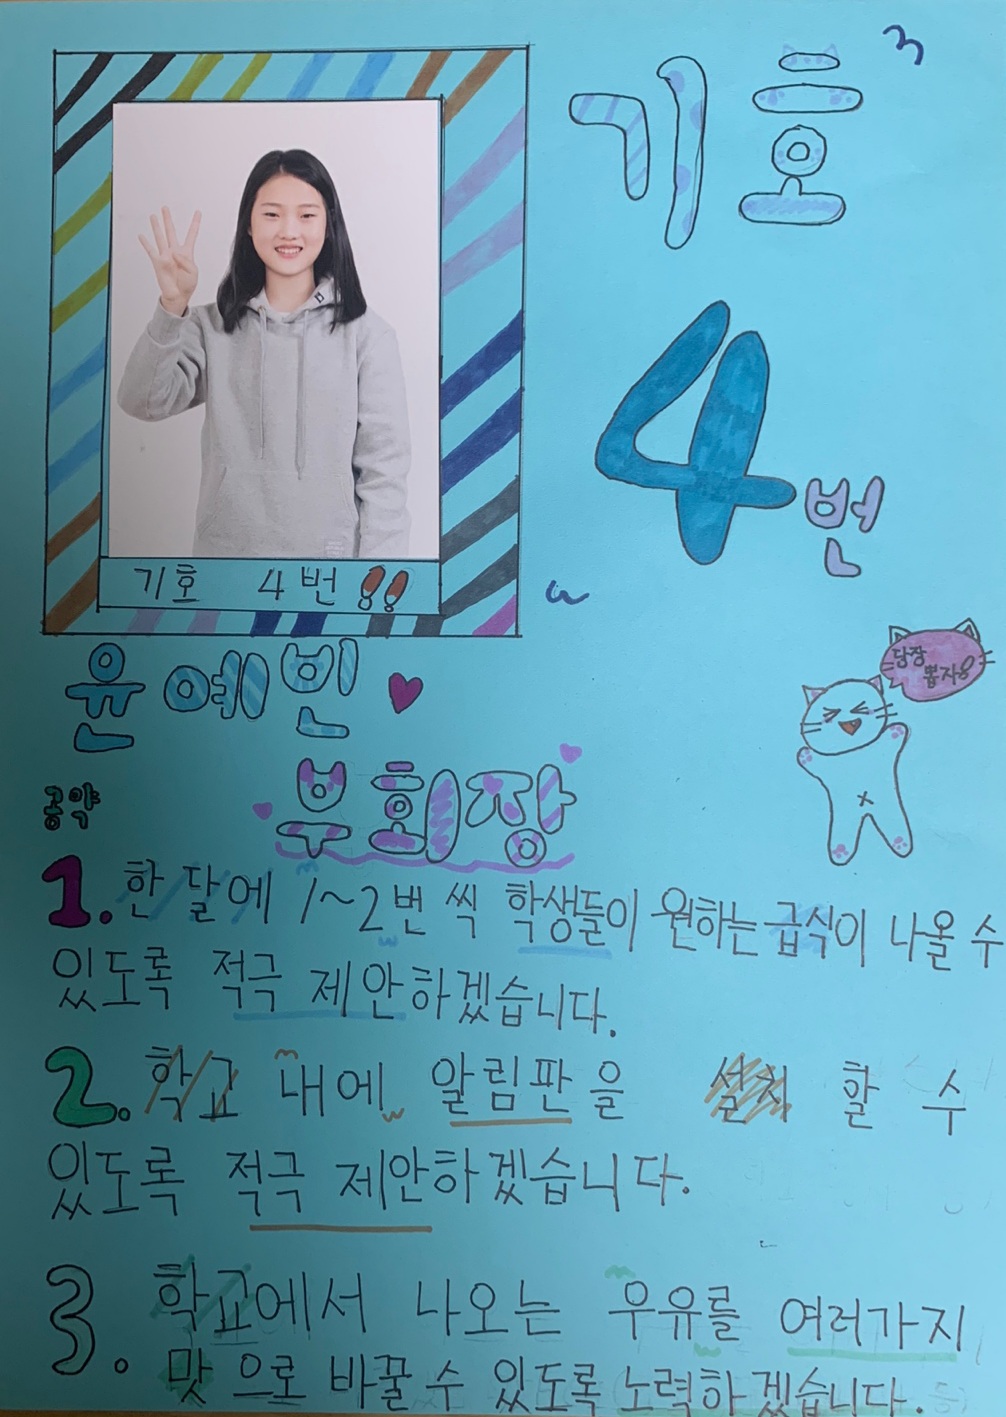 기호
4번
기호 4번!!
윤예빈
당장
뽑자!
부회장
공약
1. 한 달에 1~2번 씩 학생들이 원하는 급식이 나올 수
있도록 적극 제안하겠습니다.
2. 학교 내에 알림판을 설치 할 수
있도록 적극 제안하겠습니다.
3. 학교에서 나오는 우유를 여러가지
맛으로 바꿀 수 있도록 노력하겠습니다.